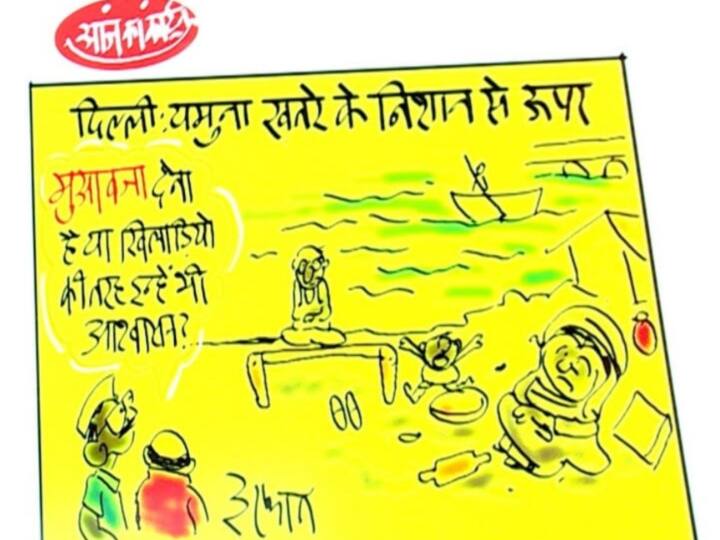 दिल्ली: यमुना खतरे के निशान से ऊपर
मुआवजा देना
है या खिलाड़ियो
की तरह इन्हें भी
आश्वासन?
इरफान